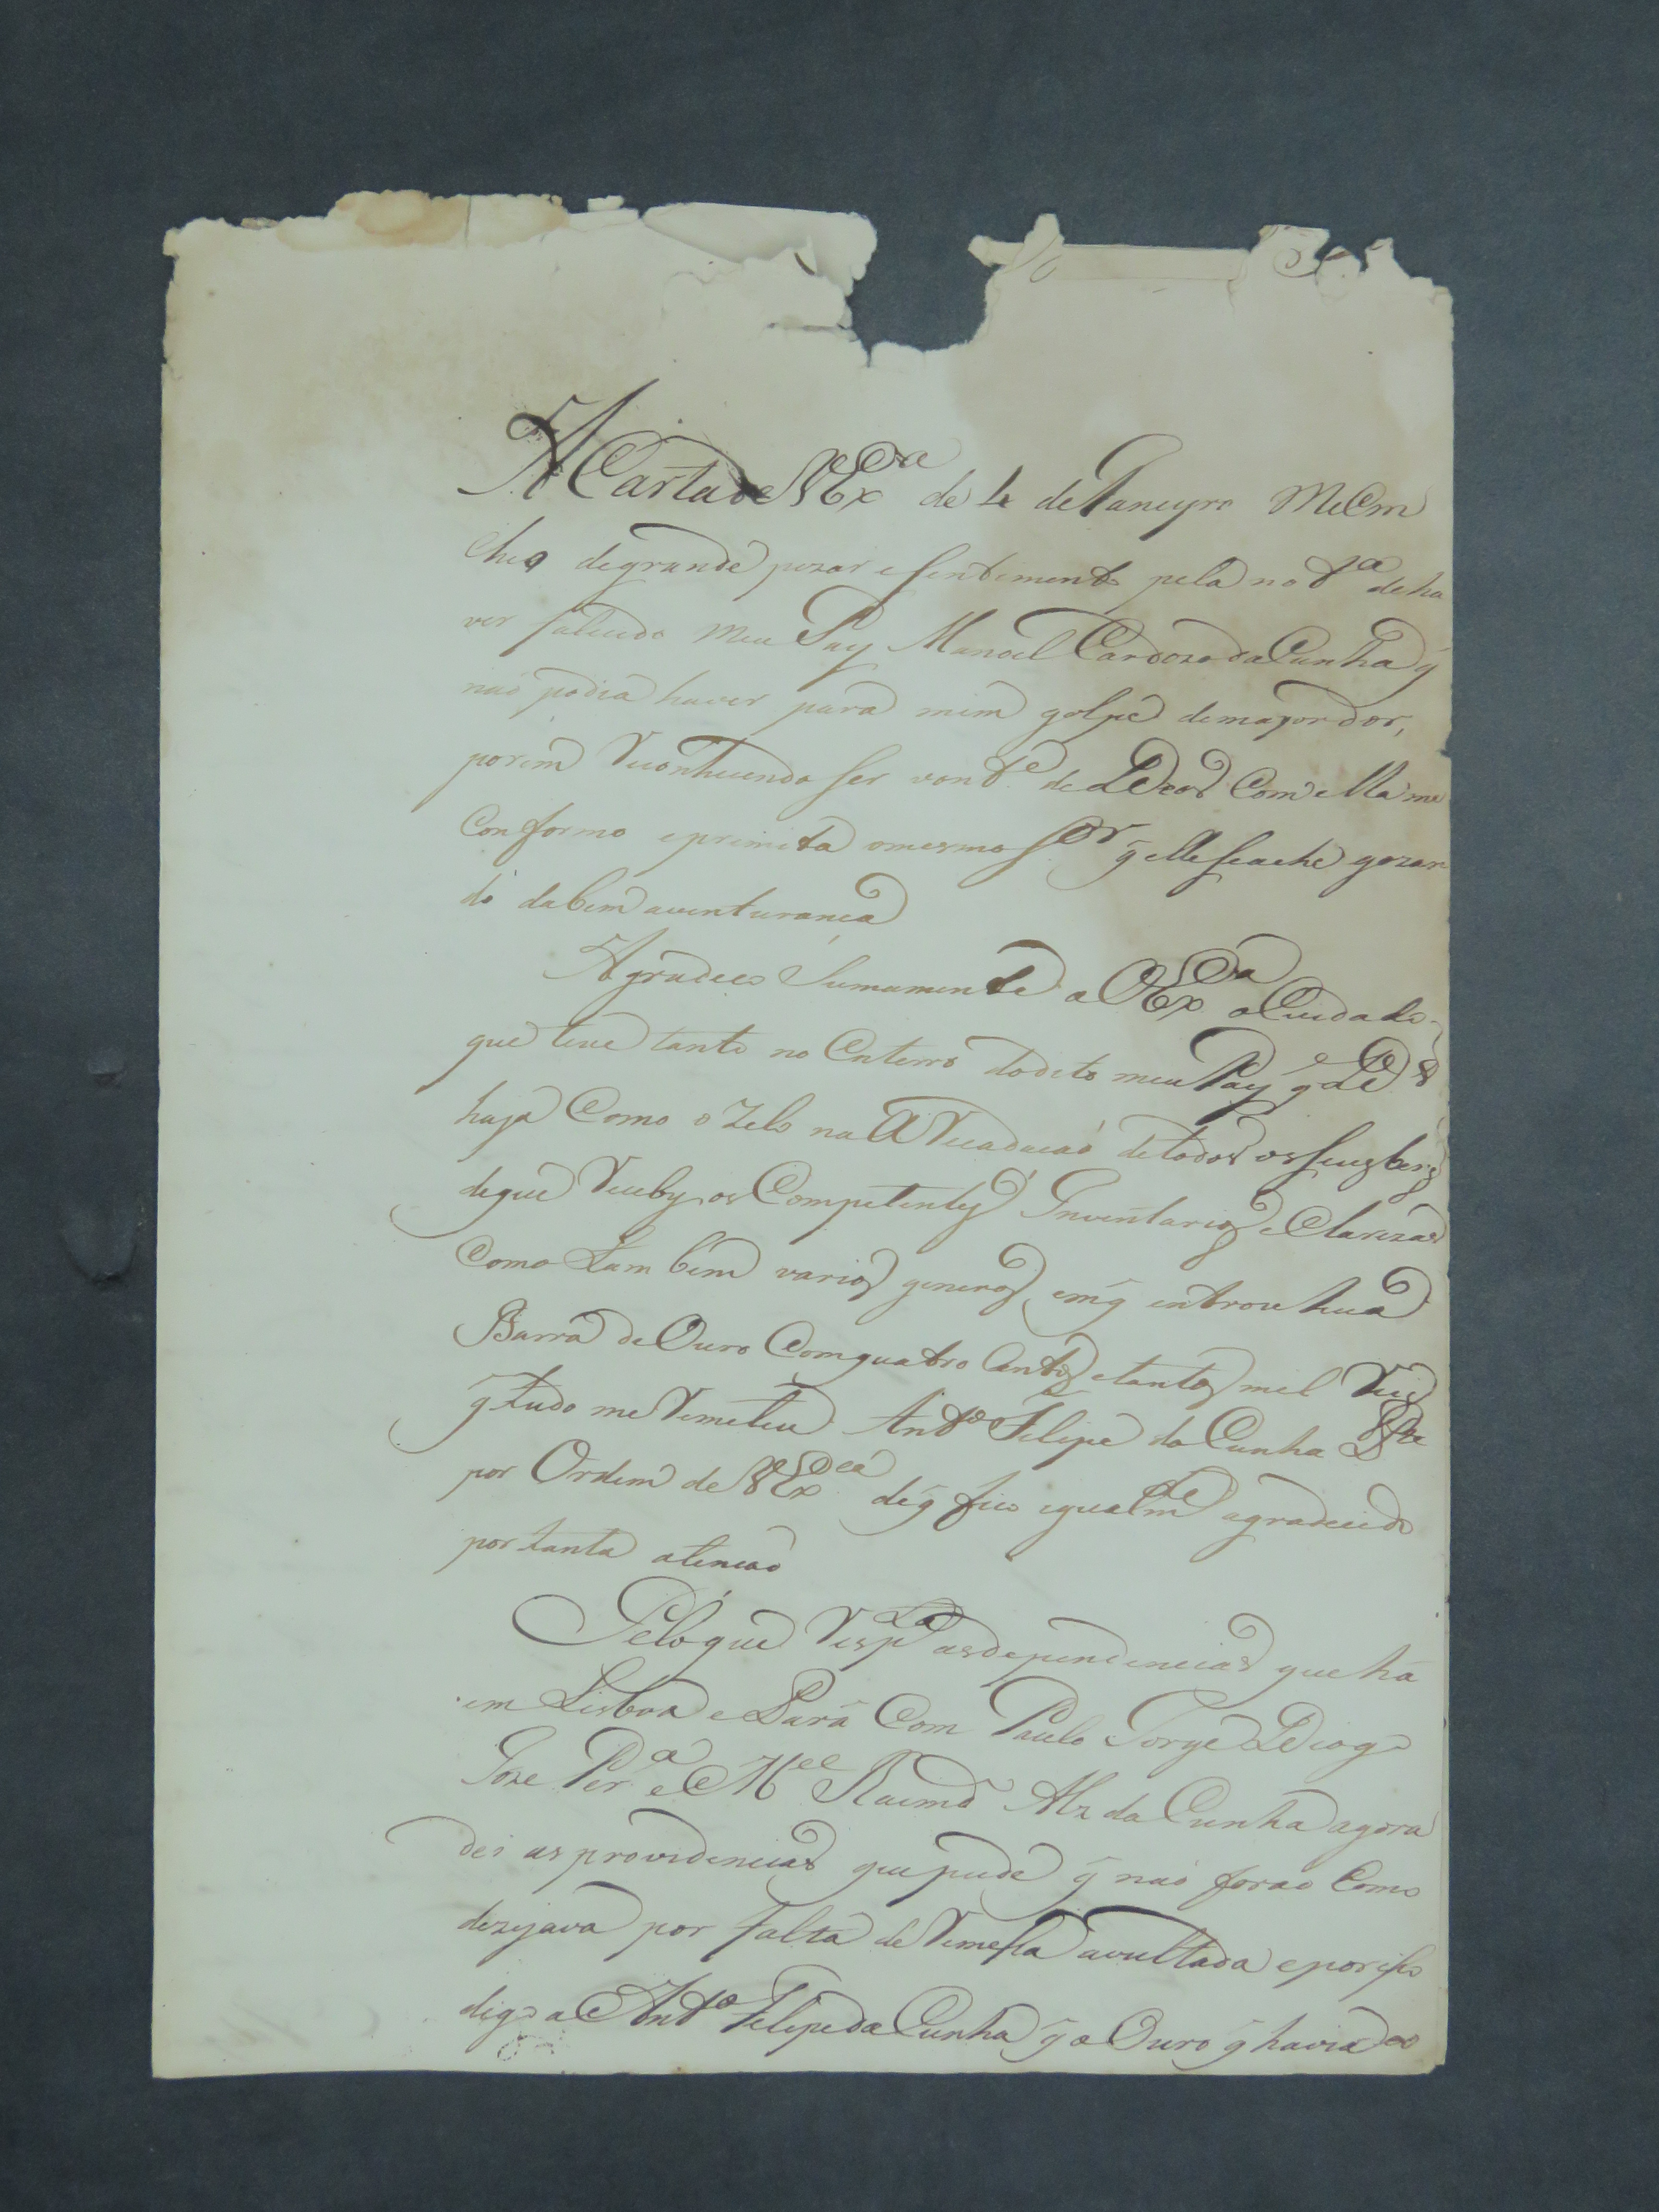 A Carta de V Ex.ª de 4 de Janeyro me em
cheo de grande pezar e sentimento pela not.ª de ha
ver falecido meu Pay Manoel Cardozo da Cunha q̃
naó podia haver para mim golpe de mayor dor,
porem Reconhecendo ser vont.e de Deos Com ella me
Conformo e primita o mesmo S.or q̃ elle se ache gozan
do da bemaventurança
Agradeço Sumamente a V Ex.ª o Cuidado
que teve tanto no Enterro do dito meu Pay q̃ D.s
haja Como o Zelo na ARecadaçaó de todos os seus bens
de que Receby os Competentes Inventarios e Clarezas
Como tambem varios generos em q̃ entrou hua
Barra de Ouro Com quatro Centos e tantos mil Reis
q̃ tudo me Remeteu Ant.o Felipe da Cunha
por Ordem de V Ex.cia de q̃ fico igualm.te agradecido
por tanta atençaó
Pelo que Resp.ta as dependencias que há
em Lisboa e Pará Com Paulo Jorge Diogo
Joze Per.ª e M.el Raimd.o Alz da Cunha agora
dei as providencias que pude q̃ naó foraó Como
dezejava por falta de Remessa avultada e por isso
digo a Ant.o Felipe da Cunha q̃ o Ouro q̃ havia